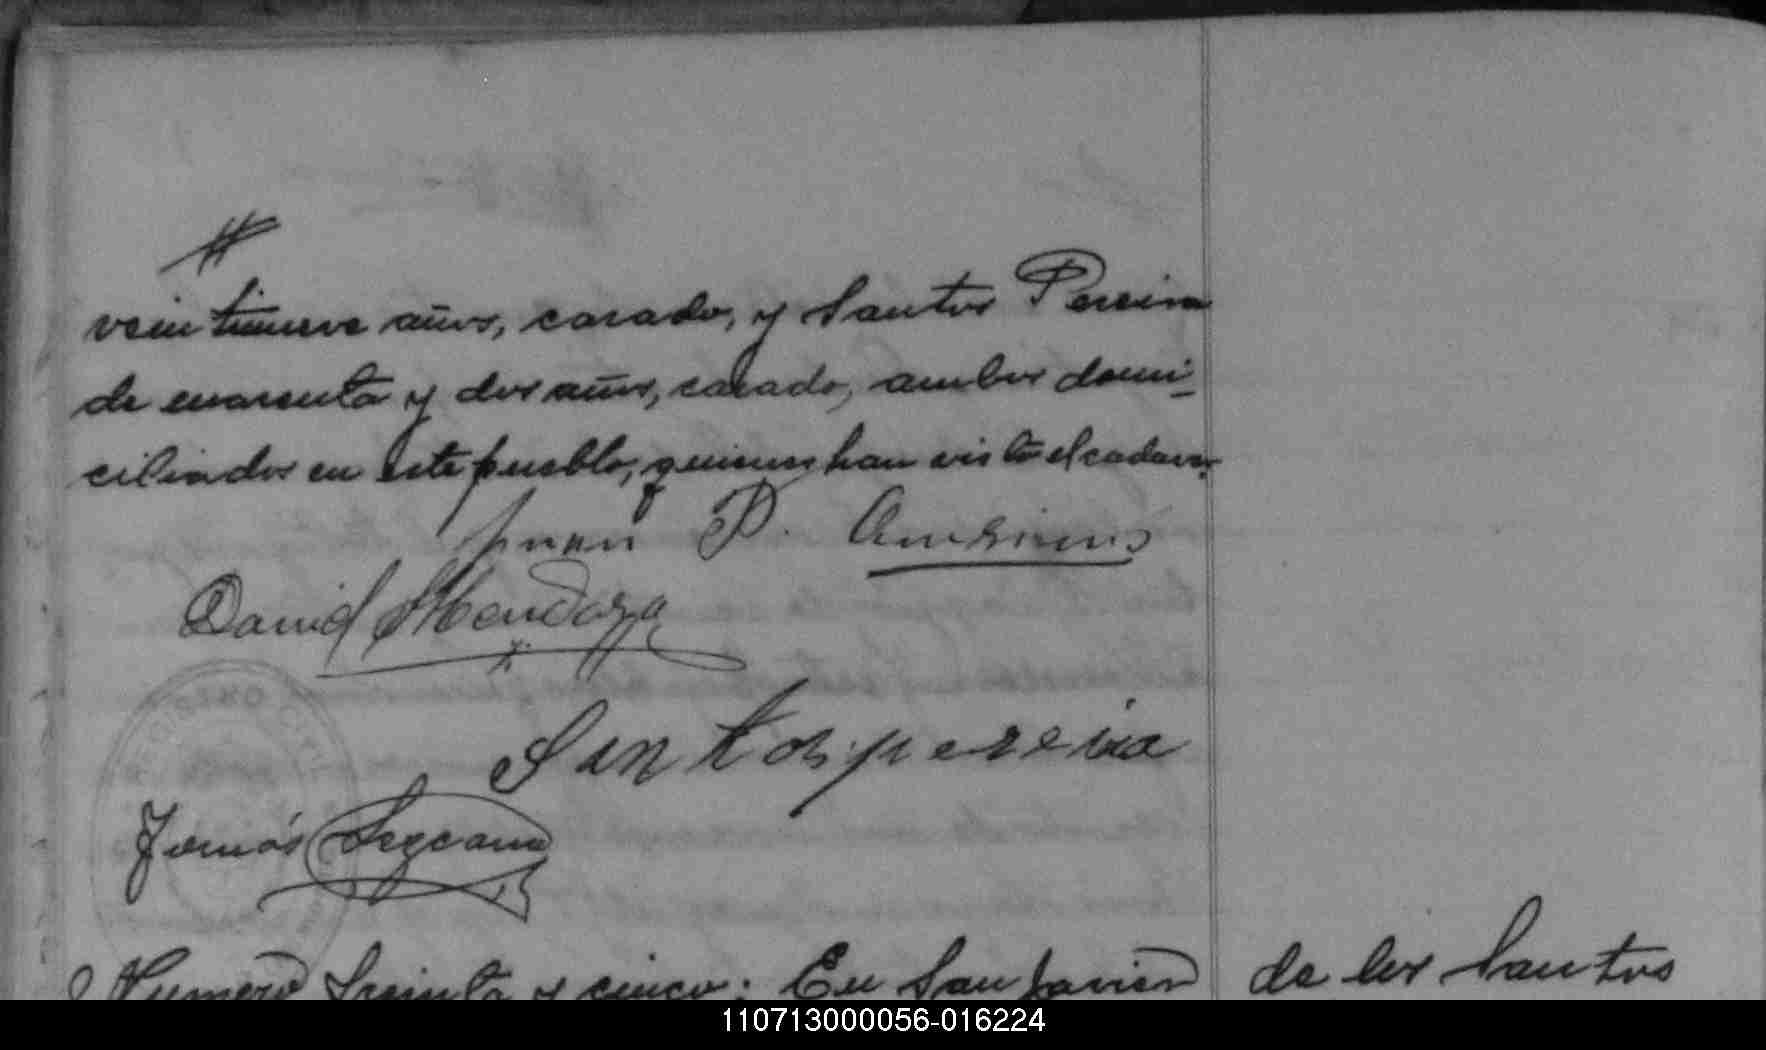 #
veintinueve años, casado, y Santos Pereira
de cuarenta y dos años, casado, ambos domi-
ciliados en este pueblo, quienes han visto el cadaver.
Juan P.
David Mendoza
Santos pereira
Tomás
Numero treinta y cinco: En San Javier
de los Santos
110713000056-016224